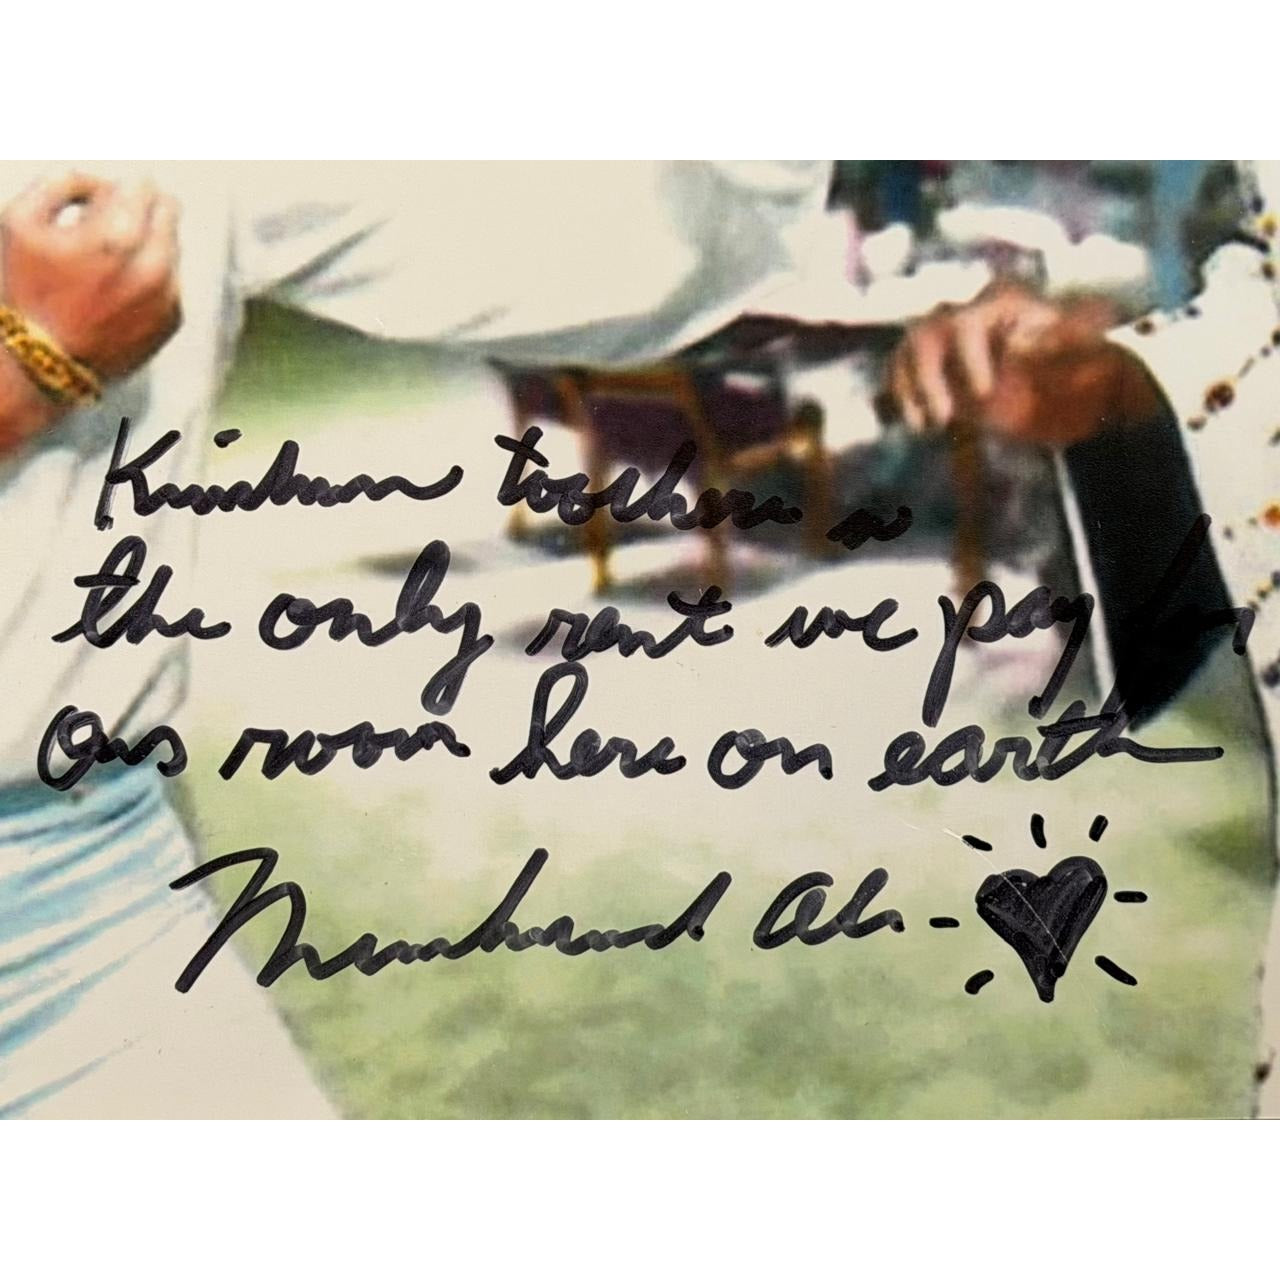 Kindness to others is
the only rent we pay for
our room here on earth
Muhammad Ali